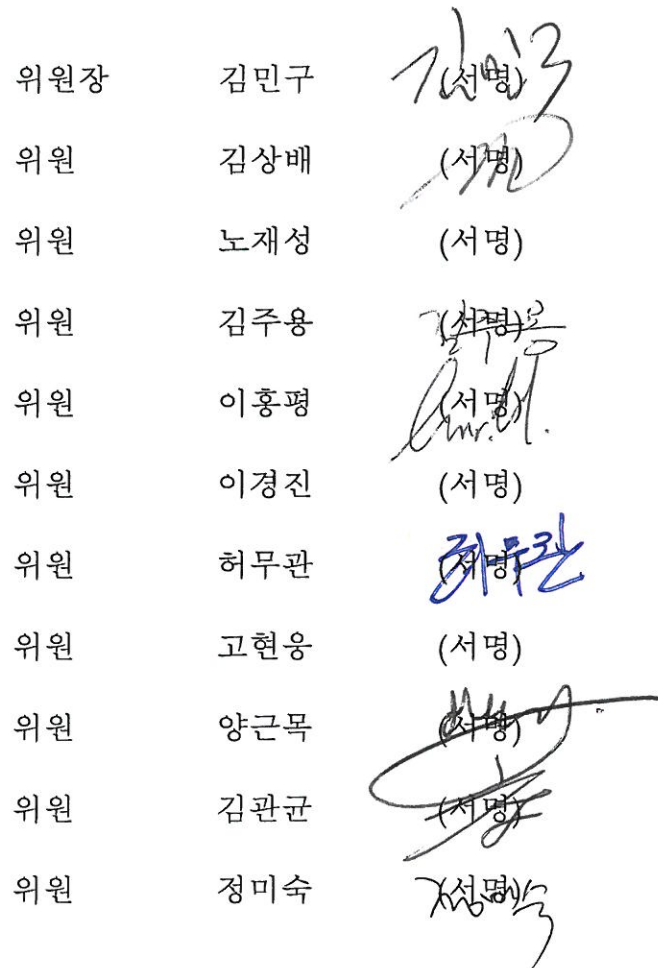 위원장 김민구 (서명)
위원 김상배 (서명)
위원 노재성 (서명)
위원 김주용 (서명)
위원 이홍평 (서명)
위원 이경진 (서명)
위원 허무관 (서명)
위원 고현웅 (서명)
위원 양근목 (서명)
위원 김관균 (서명)
위원 정미숙 (서명)